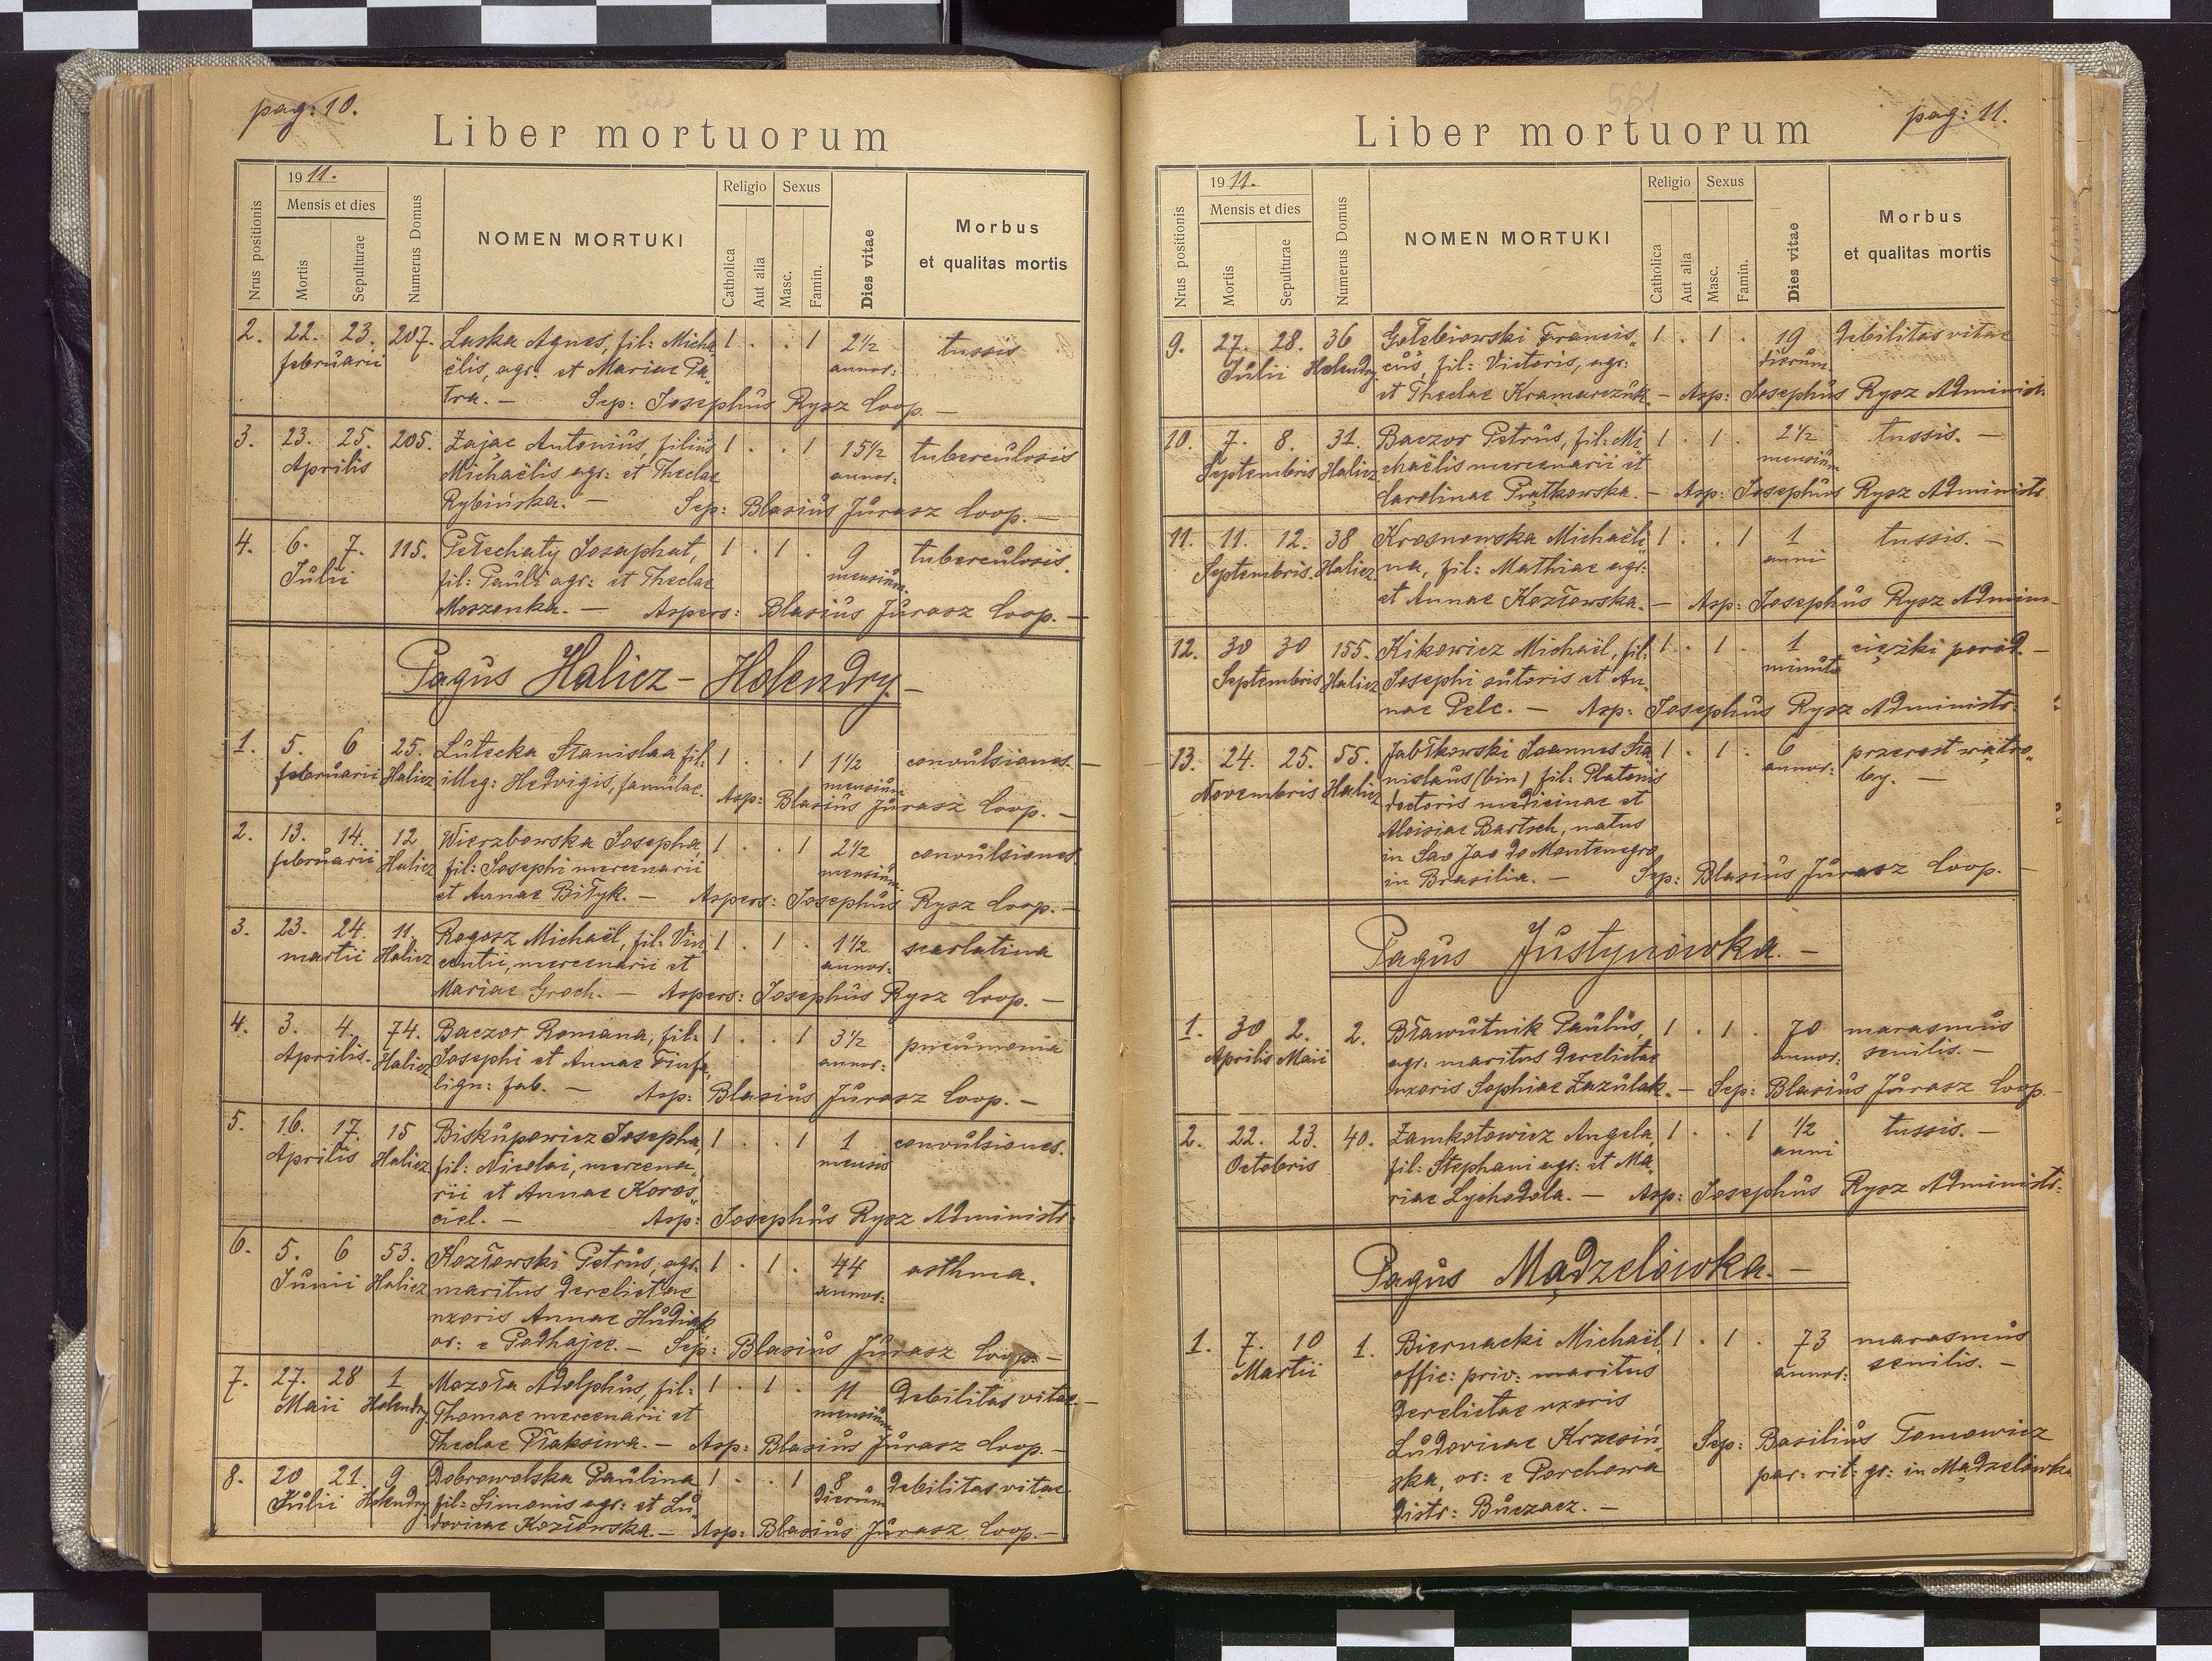 pag: 10.
Liber mortuorum
1911.
Mensis et dies
Nrus positionis
Mortis
Sepulturae
Numerus Domus
NOMEN MORTUKI
Religio
Catholica
Aut alia
Sexus
Masc.
Famin.
Dies vitae
Morbus
et qualitas mortis
2. 22. 23. 207. Laska Agnes, fil: Micha„ 1 . . 1 2½ tussis
februarii ëlis, agr: et Mariae Pa„ annor:
tra. — Sep: Josephus Rysz Coop. —
3. 23. 25. 205. Zając Antonius, filius 1 . . 1 15½ tuberculosis
Aprilis Michaëlis agr: et Theclae annor:
Rybińska. — Sep: Blasius Jurasz Coop. —
4. 6. 7. 115. Pełechaty Josaphat, 1 . 1 . 9 tuberculosis.
Julii fil: Pauli agr: et Theclae mensium.
Moszenka. — Aspers: Blasius Jurasz Coop. —
Pagus Halicz - Holendry. —
1. 5. 6 25. Lutecka Stanislaa fil: 1 . . 1 1½ convulsiones. —
februarii Halicz illeg: Hedvigis, famulae. mensium
Asp: Blasius Jurasz Coop. —
2. 13. 14. 12 Wierzbowska Josepha, 1 . . 1 2½ convulsiones
februarii Halicz fil: Josephi mercenarii mensium.
et Annae Biłyk. — Aspers: Josephus Rysz Coop. —
3. 23. 24. 11. Rogosz Michaël, fil: Vin„ 1 . 1 . 1½ scarlatina
martii Halicz centii, mercenarii et annor:
Mariae Groch. — Aspers: Josephus Rysz Coop. —
4. 3. 4. 74. Baczor Romana, fil: 1 . . 1 3½ pneumonia
Aprilis. Halicz Josephi et Annae Finfa, annor:
lign: fab. — Asp: Blasius Jurasz Coop. —
5. 16. 17. 15 Biskupowicz Josepha, 1 . . 1 1 convulsiones.
Aprilis Halicz fil: Nicolai, mercena„ mensis
rii et Annae Koros„
ciel. — Asp: Josephus Rysz Administr:
6. 5. 6 53. Kozłowski Petrus, agr. 1 . 1 . 44 asthma.
Junii Halicz maritus derelictae annor:
uxoris Annae Hudiak
or: e Podhajce. — Sep: Blasius Jurasz Coop. —
7. 27. 28 1 Mozoła Adolphus, fil: 1 . 1 . 11 debilitas vitae. —
Maii Holendry Thomae mercenarii et mensium
Theclae Płaksiwa. — Asp: Blasius Jurasz Coop. —
8. 20 21. 9 Dobrowolska Paulina 1 . . 1 8 debilitas vitae
Julii Holendry fil: Simonis agr: et Lu„ dierum
dovicae Kozłowska. — Asp: Blasius Jurasz Coop. —
561
pag: 11.
Liber mortuorum
1911.
Mensis et dies
Nrus positionis
Mortis
Sepulturae
Numerus Domus
NOMEN MORTUKI
Religio
Catholica
Aut alia
Sexus
Masc.
Famin.
Dies vitae
Morbus
et qualitas mortis
9. 27. 28. 36 Gołębiowski Francis„ 1 . 1 . 19 debilitas vitae
Julii Holendry. cus, fil: Victoris, agr: dierum
et Theclae Kramarczuk. — Asp: Josephus Rysz Administr.
10. 7. 8. 31. Baczor Petrus, fil: Mi 1 . 1 . 2½ tussis. —
Septembris Halicz chaëlis mercenarii et mensium
Carolinae Piątkowska. — Asp: Josephus Rysz Administr
11. 11. 12. 38 Krosnowska Michaëli 1 . . 1 1 tussis. —
Septembris. Halicz. na, fil: Mathiae agr: anni
et Annae Kozłowska. — Asp: Josephus Rysz Admin—
12. 30 30 155. Kikowicz Michaël, fil: 1 . 1 . 1 ciężki poród. —
Septembris Halicz Josephi sutoris et An„ minuta
nae Pelc. — Asp: Josephus Rysz Administr.
13. 24. 25. 55. Jabłkowski Joannes Sta„ 1 . 1 . 6 przerost wątro„
Novembris Halicz nislaus (bin) fil: Platonis annor: by. —
doctoris medicinae et
Aloisiae Bartsch, natus
in Sao Jao do Montenegro
in Brasilia. — Sep: Blasius Jurasz Coop. —
Pagus Justynówka. —
1. 30 2. 2. Bławutnik Paulus, 1 . 1 . 70 marasmus
Aprilis Maii agr: maritus derelictae annor: senilis. —
uxoris Sophiae Zazulak. — Sep: Blasius Jurasz Coop.
2. 22. 23. 40. Zamkotowicz Angela, 1 . . 1 ½ tussis. —
Octobris fil: Stephani agr: et Ma„ anni
riae Lychodola. — Asp: Josephus Rysz Administr:
Pagus Mądzelówka. —
1. 7. 10 1. Biernacki Michaël, 1 . 1 . 73 marasmus
Martii offic: priv: maritus annor: senilis. —
derelictae uxoris
Ludovicae Krzesiń„ Sep: Basilius Tomowicz
ska, or: e Porchowa par: rit: gr: in Mądzelówka
distr: Buczacz. —